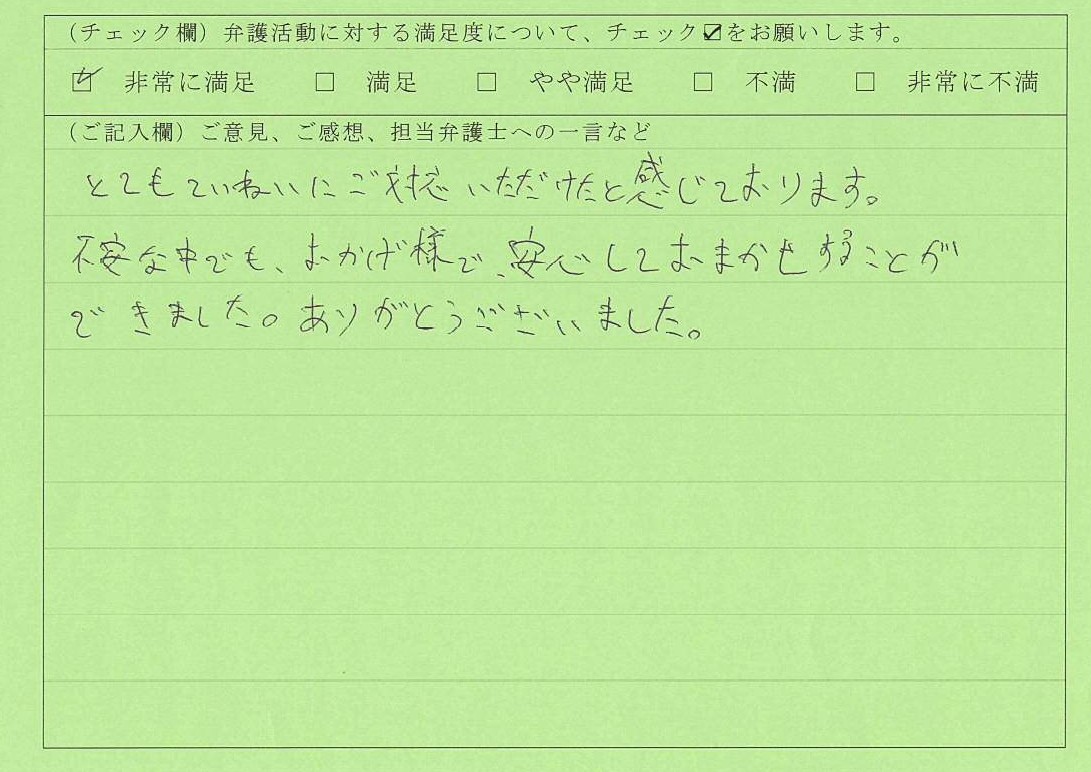 (チェック欄) 弁護活動に対する満足度について、チェック☑をお願いします。
☑ 非常に満足 □ 満足 □ やや満足 □ 不満 □ 非常に不満
(ご記入欄) ご意見、ご感想、担当弁護士への一言など
とてもていねいにご対応いただけたと感じております。
不安な中でも、おかげ様で、安心しておまかせすることが
できました。ありがとうございました。